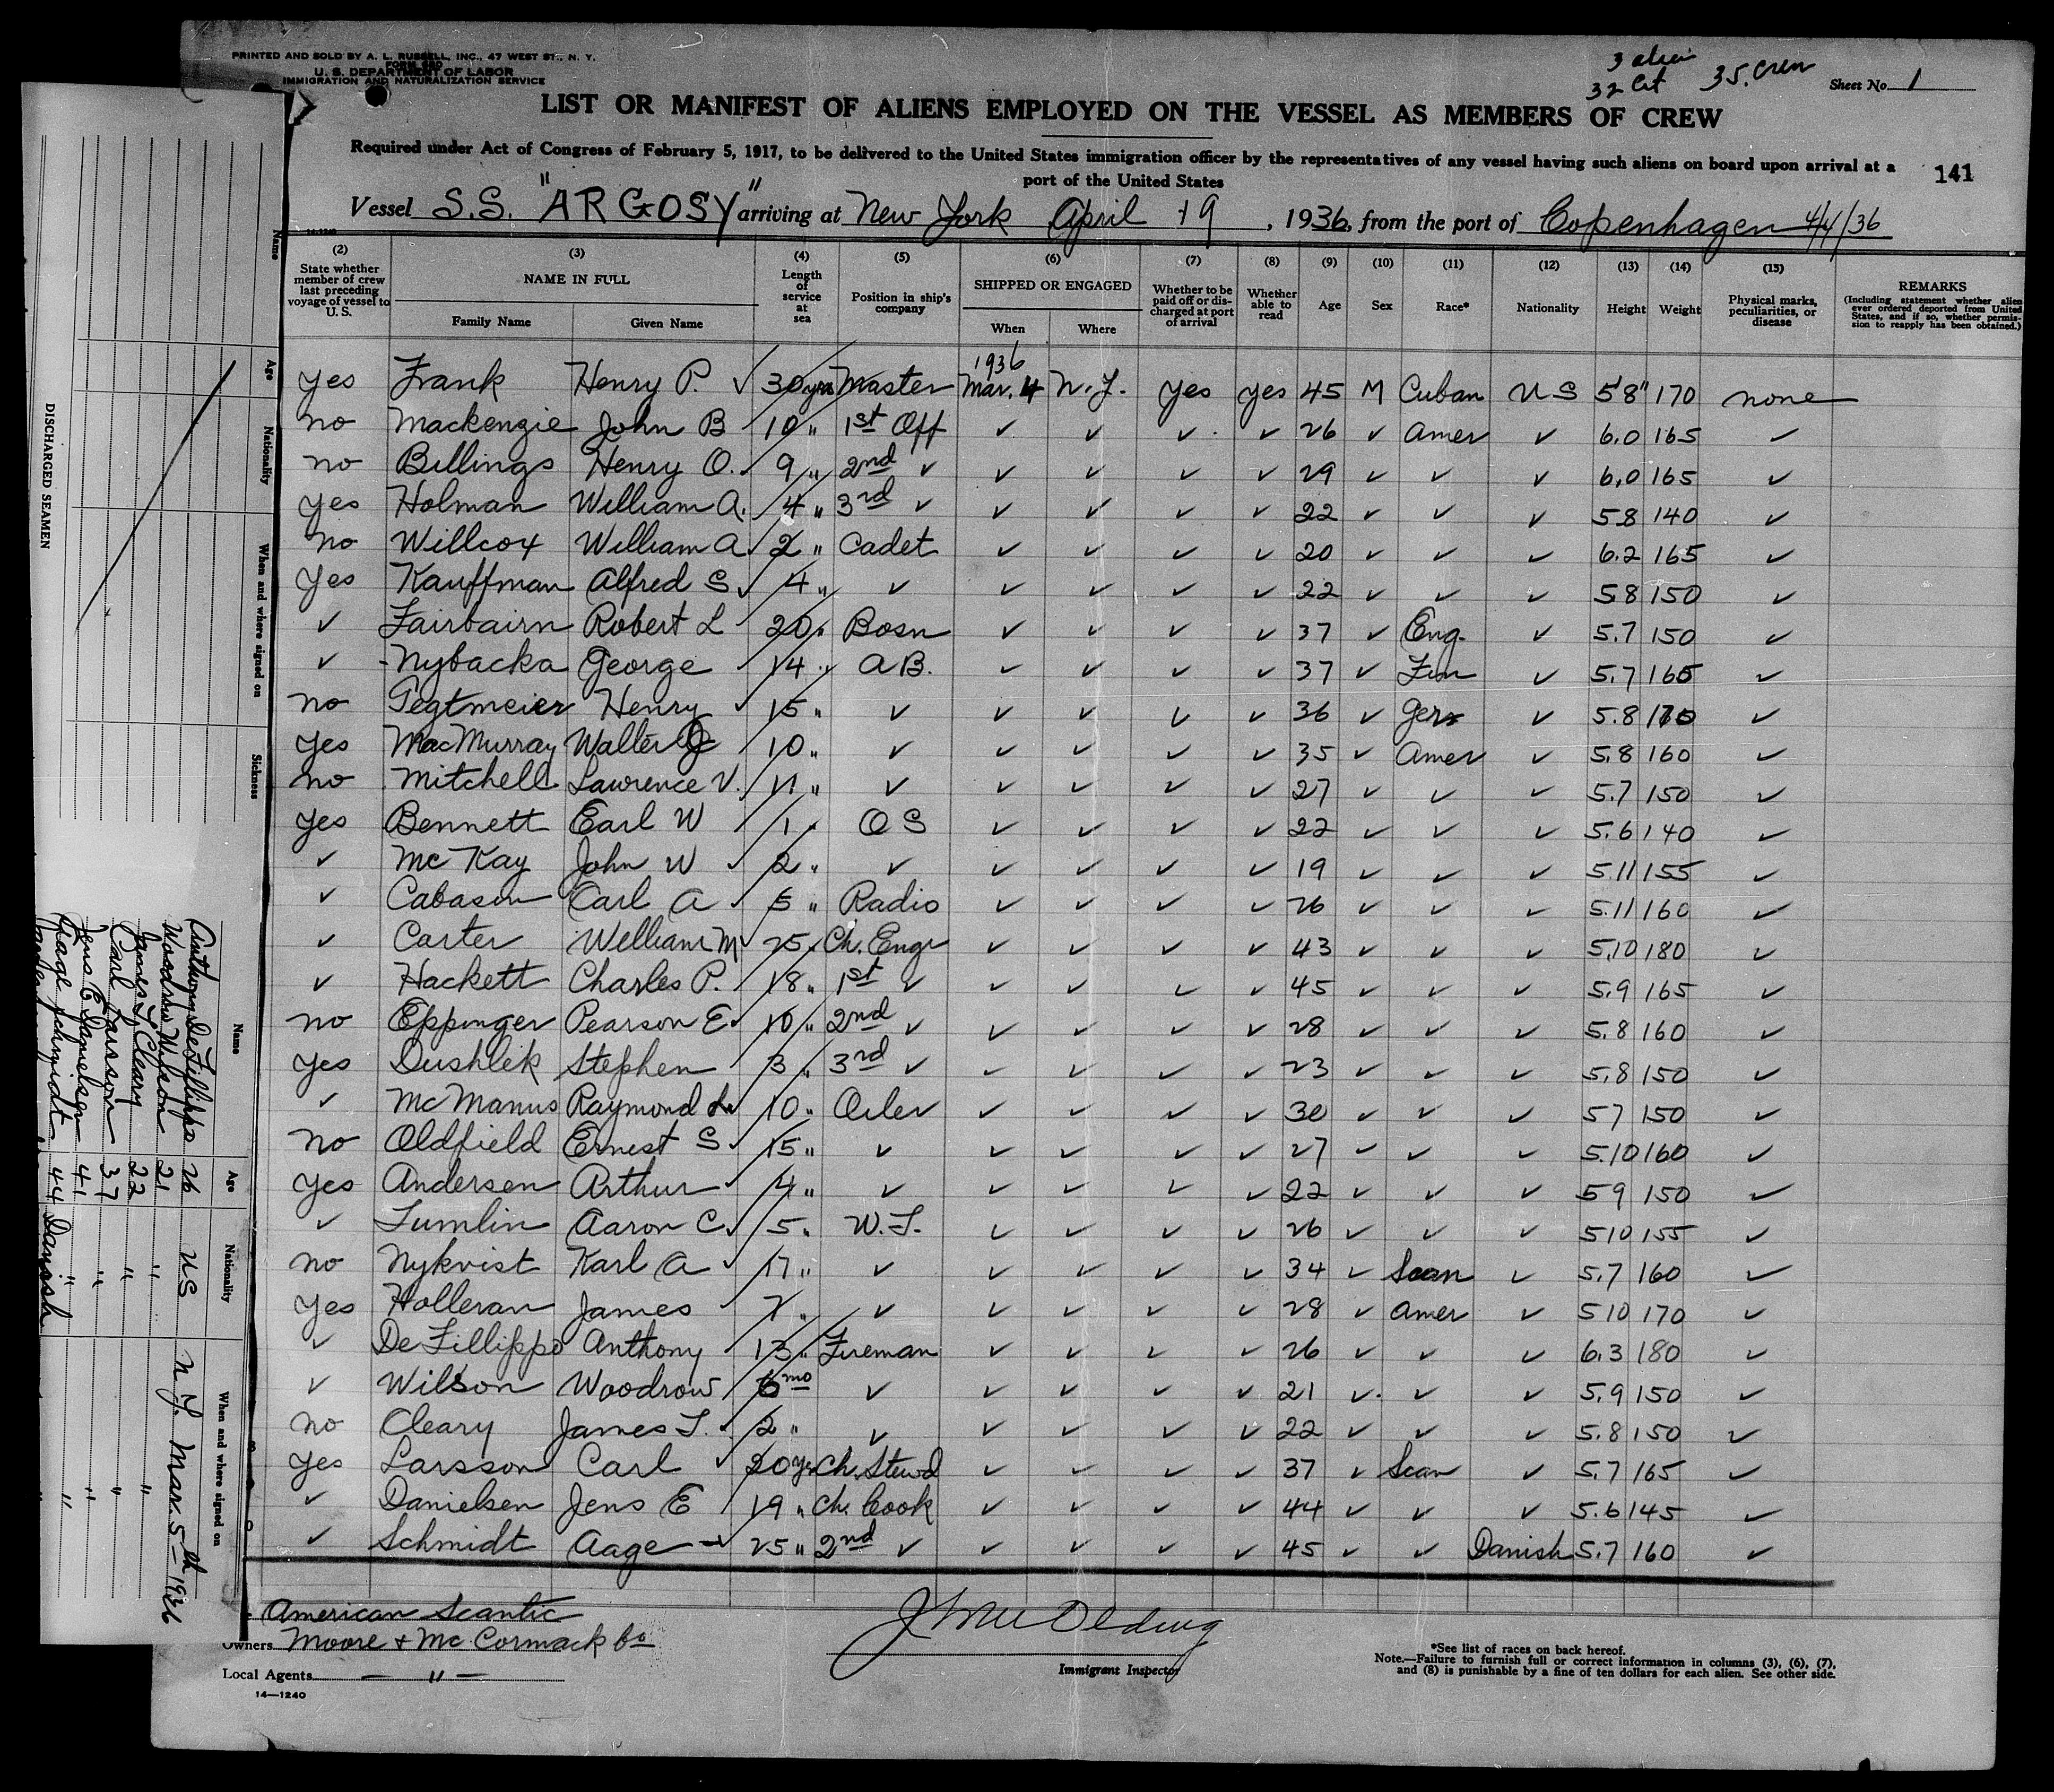 PRINTED AND SOLD BY A. L. RUSSELL, INC., 47 WEST ST., N. Y.
FORM 680
U. S. DEPARTMENT OF LABOR
IMMIGRATION AND NATURALIZATION SERVICE
3 alien
32 Cit 35. Crew
Sheet No. 1
LIST OR MANIFEST OF ALIENS EMPLOYED ON THE VESSEL AS MEMBERS OF CREW
Required under Act of Congress of February 5, 1917, to be delivered to the United States immigration officer by the representatives of any vessel having such aliens on board upon arrival at a
port of the United States
141
Vessel S.S. "ARGOSY" arriving at New York April 19, 1936, from the port of Copenhagen 4/4/36
14-1240
(2) (3) (4) (5) (6) (7) (8) (9) (10) (11) (12) (13) (14) (15)
State whether member of crew last preceding voyage of vessel to U. S.
NAME IN FULL
Family Name Given Name
Length of service at sea
Position in ship's company
SHIPPED OR ENGAGED
When Where
Whether to be paid off or discharged at port of arrival
Whether able to read
Age
Sex
Race*
Nationality
Height
Weight
Physical marks, peculiarities, or disease
REMARKS
(Including statement whether alien ever ordered deported from United States, and if so, whether permission to reapply has been obtained.)
1936
Yes Frank Henry P. ✓ 30 yrs Master Mar. 4 N.Y. Yes Yes 45 M Cuban US 5'8" 170 none
no Mackenzie John B 10 " 1st Off ✓ ✓ ✓ ✓ 26 ✓ Amer ✓ 6.0 165 ✓
no Billings Henry O. 9 " 2nd ✓ ✓ ✓ ✓ ✓ 29 ✓ ✓ ✓ 6.0 165 ✓
Yes Holman William A. 4 " 3rd ✓ ✓ ✓ ✓ ✓ 22 ✓ ✓ ✓ 5.8 140 ✓
no Willcox William A 2 " Cadet ✓ ✓ ✓ ✓ 20 ✓ ✓ ✓ 6.2 165 ✓
Yes Kauffman Alfred S 4 " ✓ ✓ ✓ ✓ ✓ 22 ✓ ✓ ✓ 5.8 150 ✓
✓ Fairbairn Robert L 20 " Bosn ✓ ✓ ✓ ✓ 37 ✓ Eng. ✓ 5.7 150 ✓
✓ Nybacka George 14 " A.B. ✓ ✓ ✓ ✓ 37 ✓ Fin ✓ 5.7 165 ✓
no Tegtmeier Henry 15 " ✓ ✓ ✓ ✓ ✓ 36 ✓ Ger ✓ 5.8 170 ✓
Yes MacMurray Walter J 10 " ✓ ✓ ✓ ✓ ✓ 35 ✓ Amer ✓ 5.8 160 ✓
no Mitchell Lawrence V. 11 " ✓ ✓ ✓ ✓ ✓ 27 ✓ ✓ ✓ 5.7 150 ✓
Yes Bennett Earl W 1 " O S ✓ ✓ ✓ ✓ 22 ✓ ✓ ✓ 5.6 140 ✓
✓ McKay John W 2 " ✓ ✓ ✓ ✓ ✓ 19 ✓ ✓ ✓ 5.11 155 ✓
✓ Carl A 5 " Radio ✓ ✓ ✓ ✓ 26 ✓ ✓ ✓ 5.11 160 ✓
✓ Carter William M 25 " Ch. Engr ✓ ✓ ✓ ✓ 43 ✓ ✓ ✓ 5.10 180 ✓
✓ Hackett Charles P. 18 " 1st ✓ ✓ ✓ ✓ ✓ 45 ✓ ✓ ✓ 5.9 165 ✓
no Eppinger Pearson E. 10 " 2nd ✓ ✓ ✓ ✓ ✓ 28 ✓ ✓ ✓ 5.8 160 ✓
Yes Dushlek Stephen 3 " 3rd ✓ ✓ ✓ ✓ ✓ 23 ✓ ✓ ✓ 5.8 150 ✓
✓ McManus Raymond L. 10 " Oiler ✓ ✓ ✓ ✓ 30 ✓ ✓ ✓ 5.7 150 ✓
no Oldfield Ernest S 15 " ✓ ✓ ✓ ✓ ✓ 27 ✓ ✓ ✓ 5.10 160 ✓
Yes Andersen Arthur 4 " ✓ ✓ ✓ ✓ ✓ 22 ✓ ✓ ✓ 5.9 150 ✓
✓ Tumlin Aaron C. 5 " W.T. ✓ ✓ ✓ ✓ 26 ✓ ✓ ✓ 5.10 155 ✓
no Nykvist Karl A 17 " ✓ ✓ ✓ ✓ ✓ 34 ✓ Scan ✓ 5.7 160 ✓
Yes Holleran James 7 " ✓ ✓ ✓ ✓ ✓ 28 ✓ Amer ✓ 5.10 170 ✓
✓ De Fillippo Anthony 13 " Fireman ✓ ✓ ✓ ✓ 26 ✓ ✓ ✓ 6.3 180 ✓
✓ Wilson Woodrow 6 mo ✓ ✓ ✓ ✓ ✓ 21 ✓ ✓ ✓ 5.9 150 ✓
no Cleary James T. 2 " ✓ ✓ ✓ ✓ ✓ 22 ✓ ✓ ✓ 5.8 150 ✓
Yes Larsson Carl 20 yrs Ch. Stewd ✓ ✓ ✓ ✓ 37 ✓ Scan ✓ 5.7 165 ✓
✓ Danielsen Jens E 19 " Ch. Cook ✓ ✓ ✓ ✓ 44 ✓ ✓ ✓ 5.6 145 ✓
✓ Schmidt Aage 25 " 2nd ✓ ✓ ✓ ✓ ✓ 45 ✓ ✓ Danish 5.7 160 ✓
American Scantic
Owners Moore & McCormack Co
Local Agents — " —
14—1240
Immigrant Inspector
*See list of races on back hereof.
Note.—Failure to furnish full or correct information in columns (3), (6), (7),
and (8) is punishable by a fine of ten dollars for each alien. See other side.
DISCHARGED SEAMEN
Name Age Nationality When and where signed on Sickness
Name Age Nationality When and where signed on
Anthony De Fillippo 26 US N.Y. Mar. 5th 1936
Woodrow Wilson 21 " "
James T. Cleary 22 " "
Carl Larsson 37 " "
Jens E Danielsen 41 " "
Aage Schmidt 44 Danish "